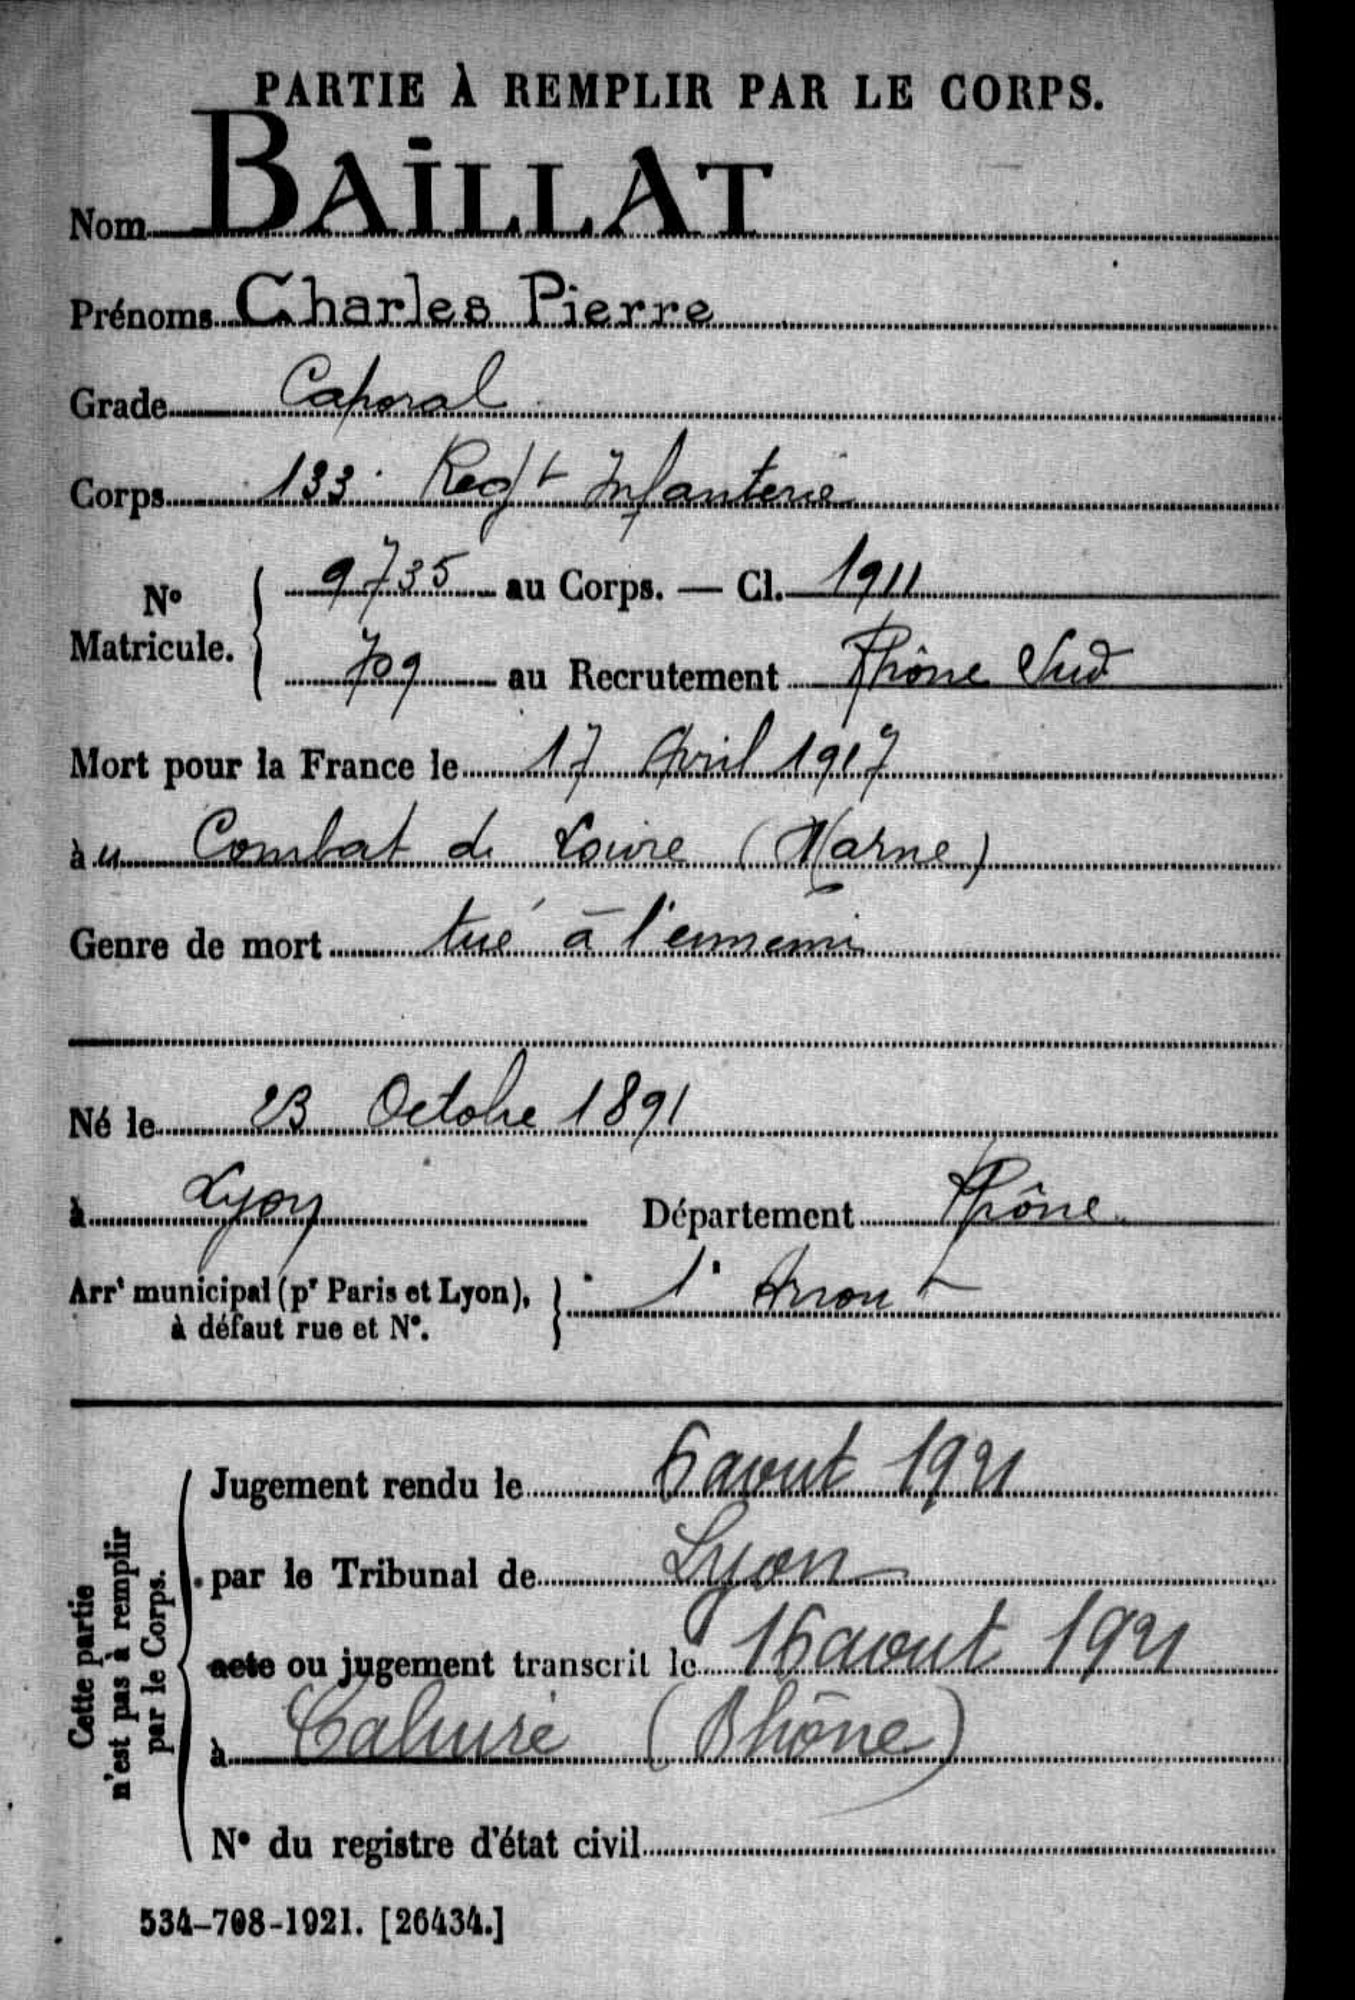 PARTIE À REMPLIR PAR LE CORPS.
Nom BAILLAT
Prénoms Charles Pierre
Grade Caporal
Corps 133. Regt Infanterie
N° Matricule. 9735 au Corps. — Cl. 1911
709 au Recrutement Rhône Sud
Mort pour la France le 17 Avril 1917
à u Combat de Loivre (Marne)
Genre de mort tué à l'ennemi
Né le 23 Octobre 1891
à Lyon Département Rhône
Arrt municipal (pr Paris et Lyon), à défaut rue et N°. 1. Arront
Cette partie n'est pas à remplir par le Corps.
Jugement rendu le 6 aout 1921
par le Tribunal de Lyon
acte ou jugement transcrit le 16 aout 1921
à Caluire (Rhône)
N° du registre d'état civil
534-708-1921. [26434.]